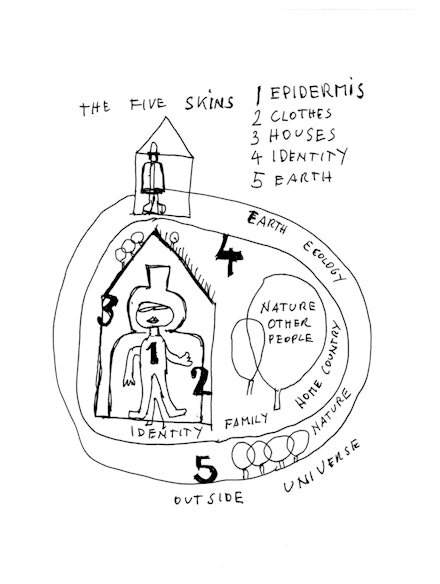 THE FIVE SKINS
1 EPIDERMIS
2 CLOTHES
3 HOUSES
4 IDENTITY
5 EARTH
EARTH ECOLOGY
4
3
NATURE
OTHER
PEOPLE
1
2
HOME COUNTRY
IDENTITY FAMILY
NATURE
5
OUTSIDE UNIVERSE